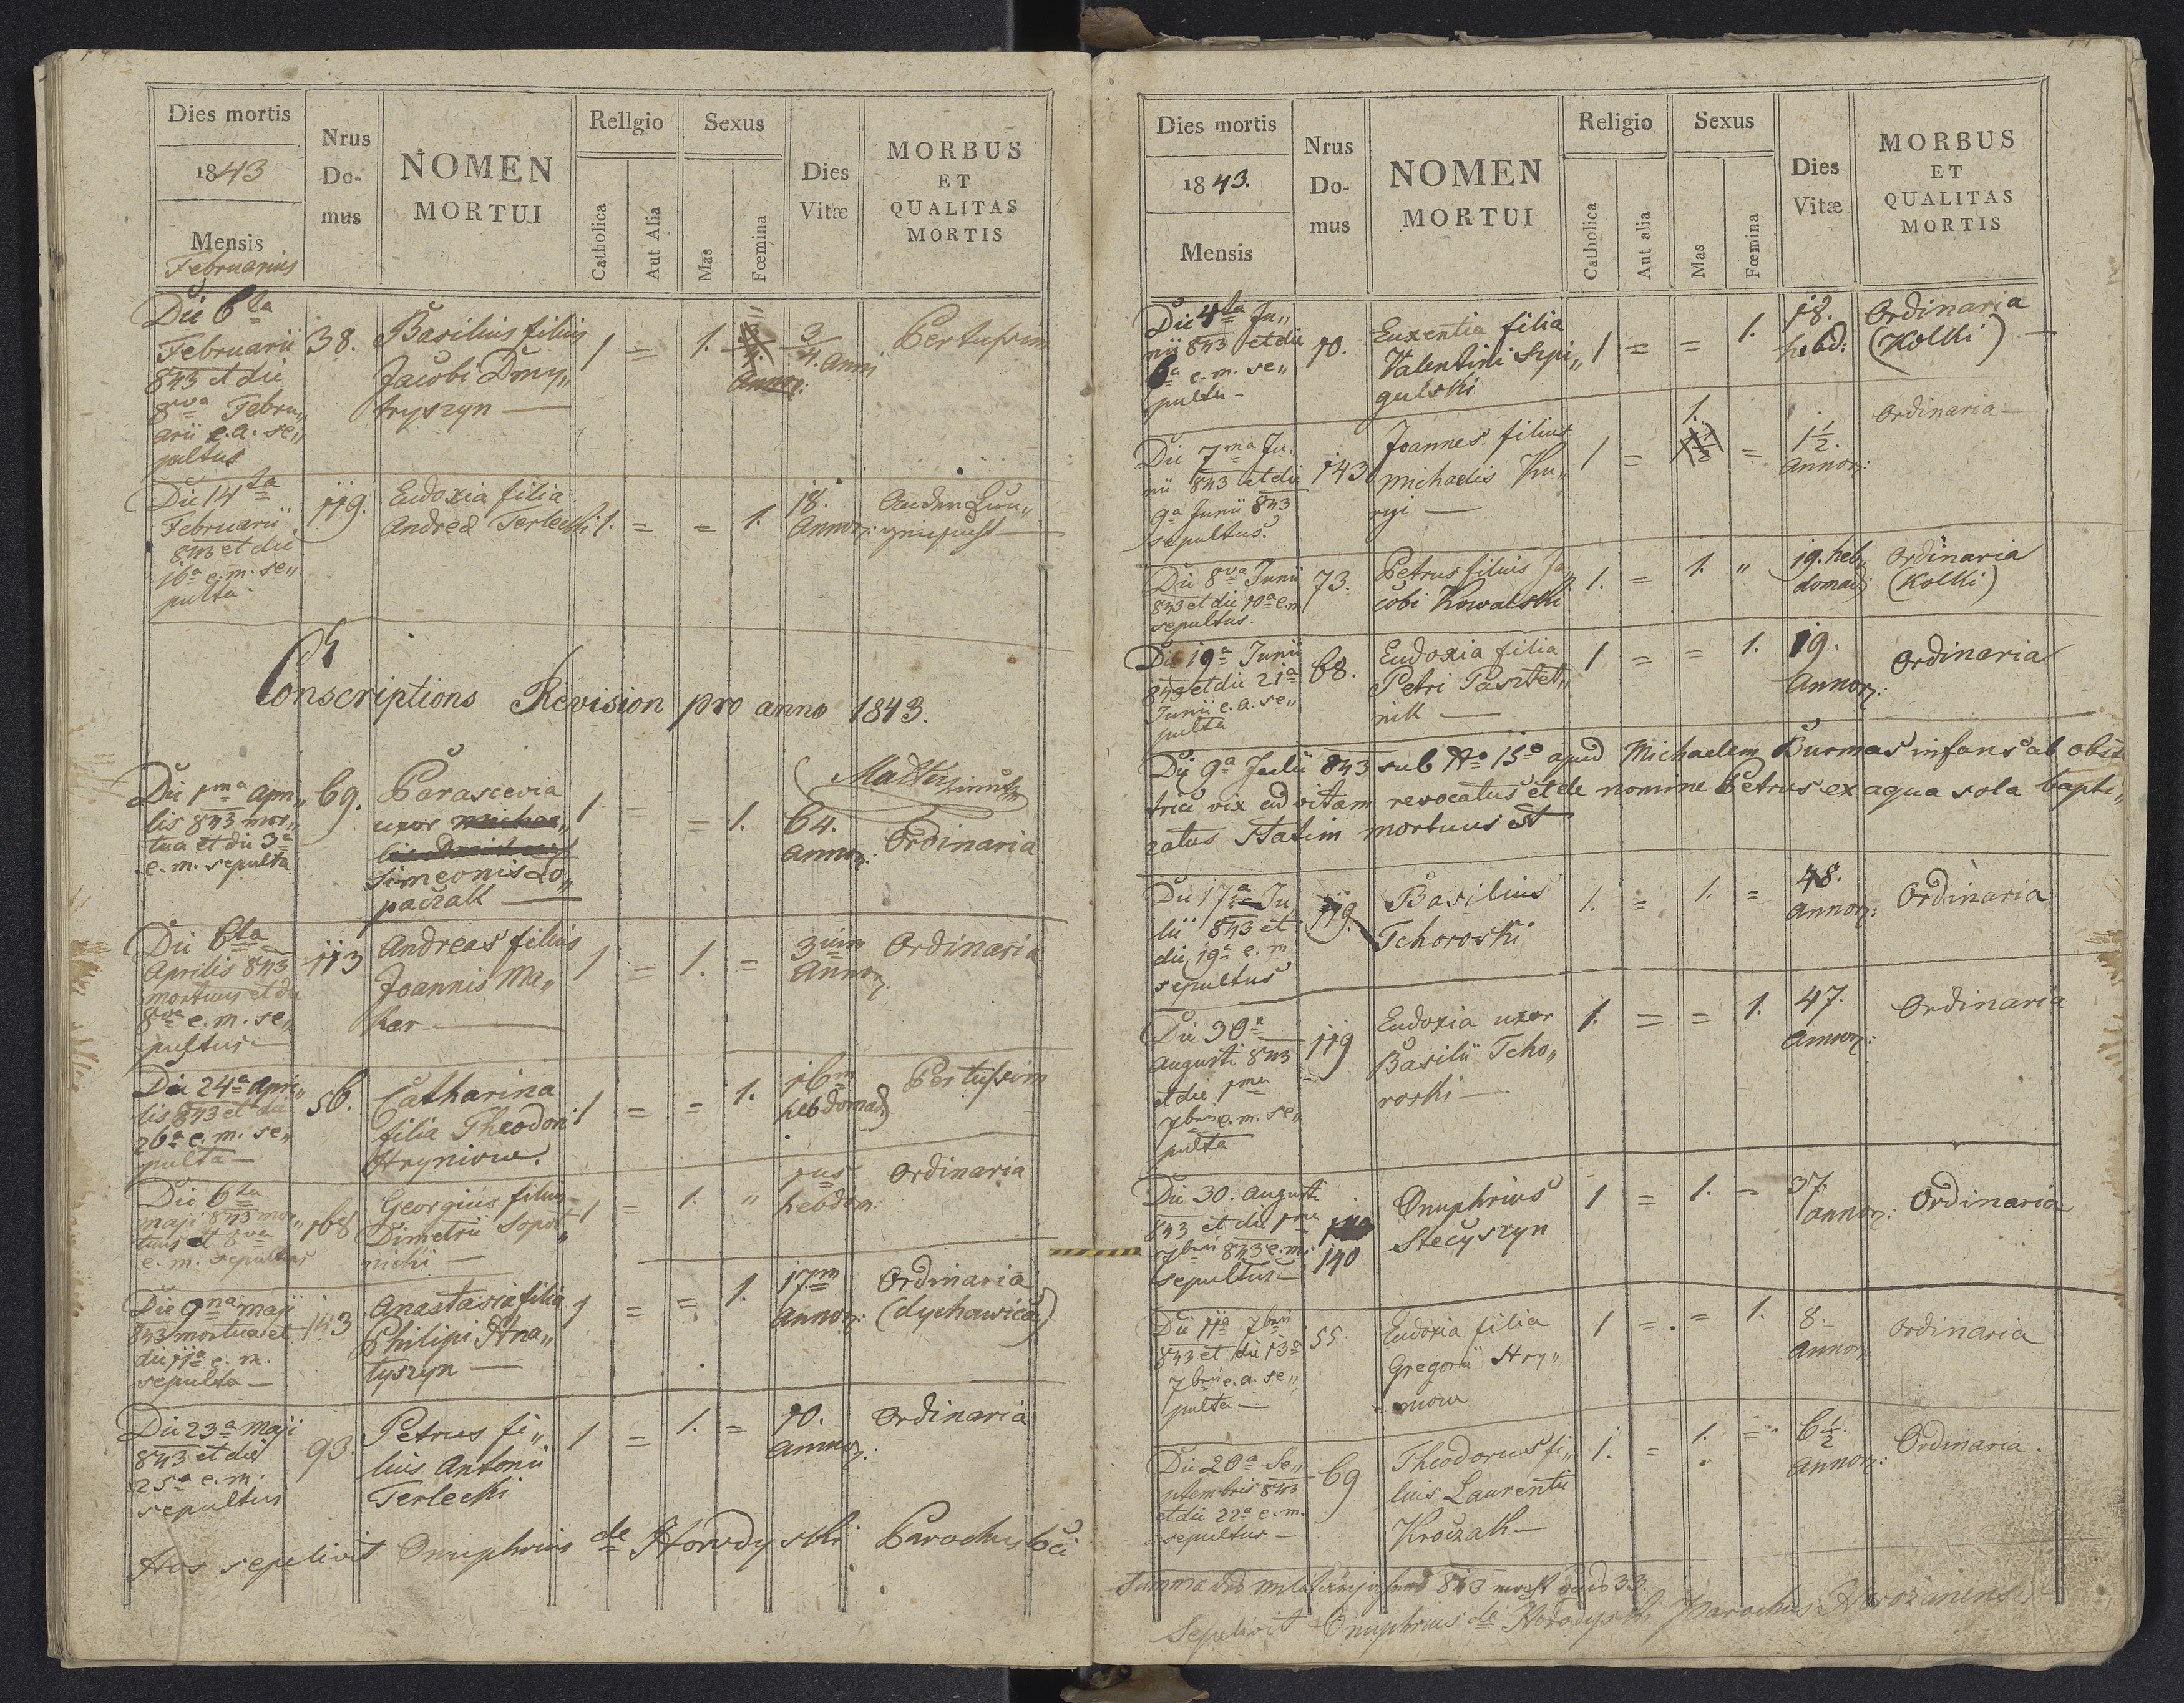 Dies mortis
1843
Mensis
Februarius
Nrus
Do-
mus
NOMEN
MORTUI
Religio
Catholica
Aut Alia
Sexus
Mas
Fœmina
Dies
Vitæ
MORBUS
ET
QUALITAS
MORTIS
Die 6ta
Februarii
843 et die
8va Febru„
arii e.a. se„
pultus
38.
Basilius filius
Jacobi Dmy„
tryszyn —
1 = 1.
3/4. anni
Pertussim
Die 14ta
Februarii
843 et die
16a e.m. se„
pulta.
119.
Eudoxia filia
Andreæ Terlecki
1. = = 1.
18.
Annor:
Conscriptions Revision pro anno 1843.
Die 1ma Apri„
lis 843 mor„
tua et die 3a
e.m. sepulta
69.
Parascevia
uxor
Simeonis Lo„
paczak —
1 = = 1.
64.
Annor:
Ordinaria
Die 6ta
Aprilis 843
mortuus et die
8va e.m. se„
pultus —
113
Andreas filius
Joannis Ma„
kar —
1 = 1. =
3um
Annor.
Ordinaria
Die 24a Apri„
lis 843 et die
26a e.m. se„
pulta —
56.
Catharina
filia Theodori
Hryniow.
1 = = 1.
16m
hebdomad:
Pertussim
Die 6ta
Maji 843 mor„
tuus et 8va
e.m. sepultus
168
Georgius filius
Dimetrii Sopot„
nicki —
1 = 1. „
hebdom:
Ordinaria
Die 9na Maji
843 mortua et
die 11a e.m.
sepulta —
143
Anastasia filia
Philipi Hna„
tyszyn —
1 = = 1.
17m
Annor:
Ordinaria
(dychawica)
Die 23a Maji
843 et die
25a e.m.
sepultus
93.
Petrus fi„
lius Antonii
Terlecki
1 = 1. =
10.
Annor:
Ordinaria
Hos sepelivit Onuphrius de Horodyski Parochus loci
Dies mortis
1843.
Mensis
Nrus
Do-
mus
NOMEN
MORTUI
Religio
Catholica
Aut alia
Sexus
Mas
Fœmina
Dies
Vitæ
MORBUS
ET
QUALITAS
MORTIS
Die 4ta Ju„
nii 843 et die
6a e.m. se„
pulta —
10.
Euxentia filia
Valentini Szpi„
gulski
1 = = 1.
18.
hebd:
Ordinaria
(Kolki) —
Die 7ma Ju„
nii 843 et die
9a Junii 843
sepultus.
143
Joannes filius
Michaelis Ku„
ryj —
1 = 1. =
1 1/2.
Annor:
Ordinaria —
Die 8va Junii
843 et die 10a e.m.
sepultus.
73.
Petrus filius Ja„
cobi Kowalski
1. = 1. „
19. heb„
domad:
Ordinaria
(Kolki)
Die 19a Junii
843 et die 21a
Junii e.a. se„
pulta
68.
Eudoxia filia
Petri Pasztet„
nik —
1 = = 1.
19.
Annor:
Ordinaria
Die 9a Julii 843 sub No 15o apud Michaelem Burmas infans ab obste„
trice vix ad vitam revocatus et de nomine Petrus ex aqua sola bapti„
zatus statim mortuus est
Die 17a Ju„
lii 843 et
die 19a e.m.
sepultus
119.
Basilius
Tchoroski
1. = 1. =
48.
Annor:
Ordinaria
Die 30a
Augusti 843
et die 1ma
7bris e.m. se„
pulta
119
Eudoxia uxor
Basilii Tcho„
roski —
1. = = 1.
47.
Annor:
Ordinaria
Die 30. Augusti
843 et die 1ma
7bris 843 e.m.
sepultus —
140
Onuphrius
Stecyszyn
1 = 1. —
37.
Annor:
Ordinaria
Die 11a 7bris
843 et die 13a
7bris e.a. se„
pulta —
55.
Eudoxia filia
Gregorii Hry„
niow
1 = = 1.
8 —
Annor:
Ordinaria
Die 20a Se„
ptembris 843
et die 22a e.m.
sepultus —
69
Theodorus fi„
lius Laurentii
Kroczak —
1. = 1. =
6 1/2
Annor:
Ordinaria
Summa 843 33.
Sepelivit Onuphrius de Horodyski Parochus